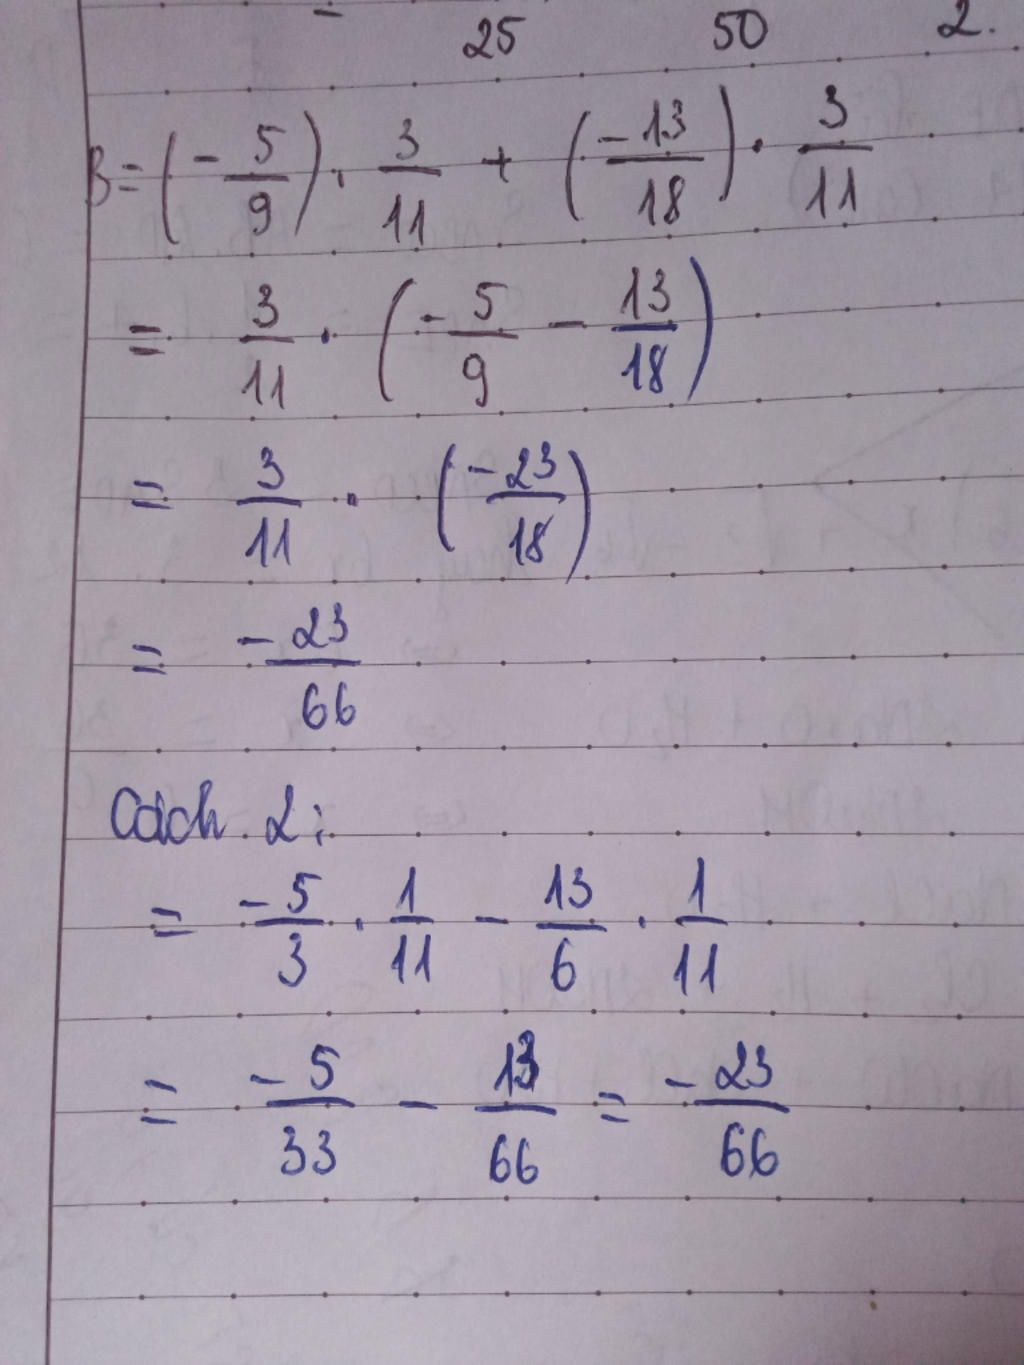 25 50 2.
B = (-5/9) . 3/11 + (-13/18) . 3/11
= 3/11 . (-5/9 - 13/18)
= 3/11 . (-23/18)
= -23/66
Cách 2:
= -5/3 . 1/11 - 13/6 . 1/11
= -5/33 - 13/66 = -23/66